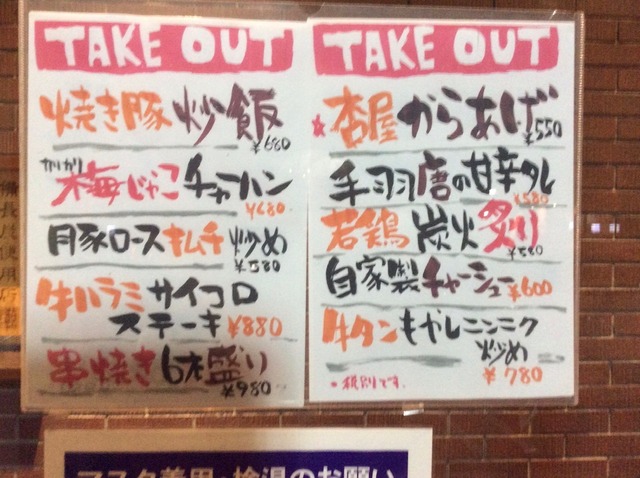 TAKE OUT
焼き豚 炒飯
¥680
カリカリ
梅じゃこチャーハン
¥680
豚ロースキムチ炒め
¥580
牛ハラミサイコロ
ステーキ ¥880
串焼き6本盛り
¥980
TAKE OUT
★杏屋からあげ
¥550
手羽唐の甘辛タレ
¥580
若鶏 炭火炙り
¥580
自家製チャーシュー ¥600
牛タンもやしニンニク
炒め
¥780
・税別です.
マスク着用・検温のお願い